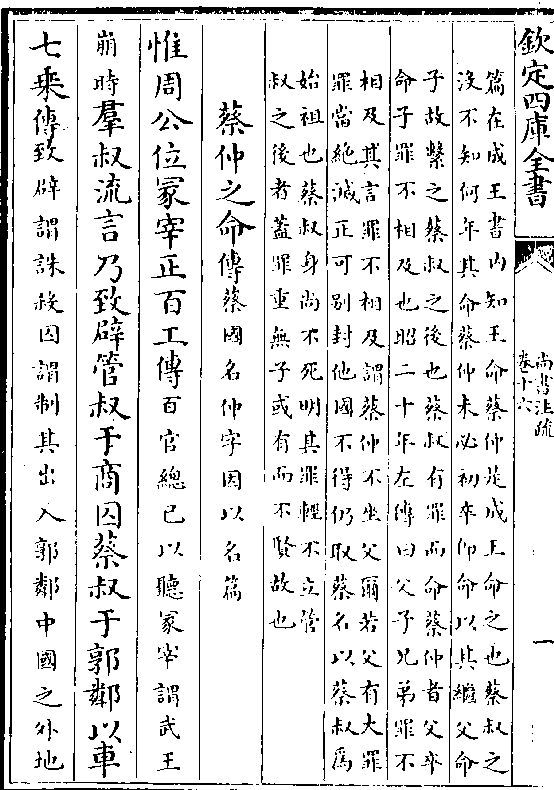 欽定四庫全書
尚書注疏
卷十六
一
篇在成王書内知王命蔡仲是成王命之也蔡叔之
沒不知何年其命蔡仲未必初卒即命以其繼父命
子故繫之蔡叔之後也蔡叔有罪而命蔡仲者父卒
命子罪不相及也昭二十年左傳曰父子兄弟罪不
相及其言罪不相及謂蔡仲不坐父爾若父有大罪
罪當絶滅正可别封他國不得仍取蔡名以蔡叔爲
始祖也蔡叔身尚不死明其罪輕不立管
叔之後者蓋罪重無子或有而不賢故也
蔡仲之命傳蔡國名仲字因以名篇
惟周公位冢宰正百工傳百官總已以聽冢宰謂武王
崩時羣叔流言乃致辟管叔于商囚蔡叔于郭鄰以車
七乗傳致辟謂誅殺囚謂制其出入郭鄰中國之外地